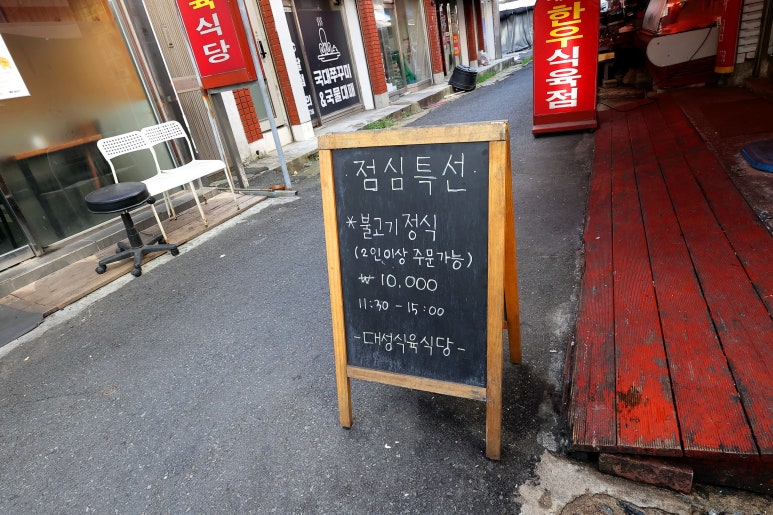 육식당
국대쭈꾸미
&국물대패
한우식육점
·점심특선·
*불고기 정식
(2인이상 주문가능)
₩ 10.000
11:30 - 15:00
-대성식육식당-